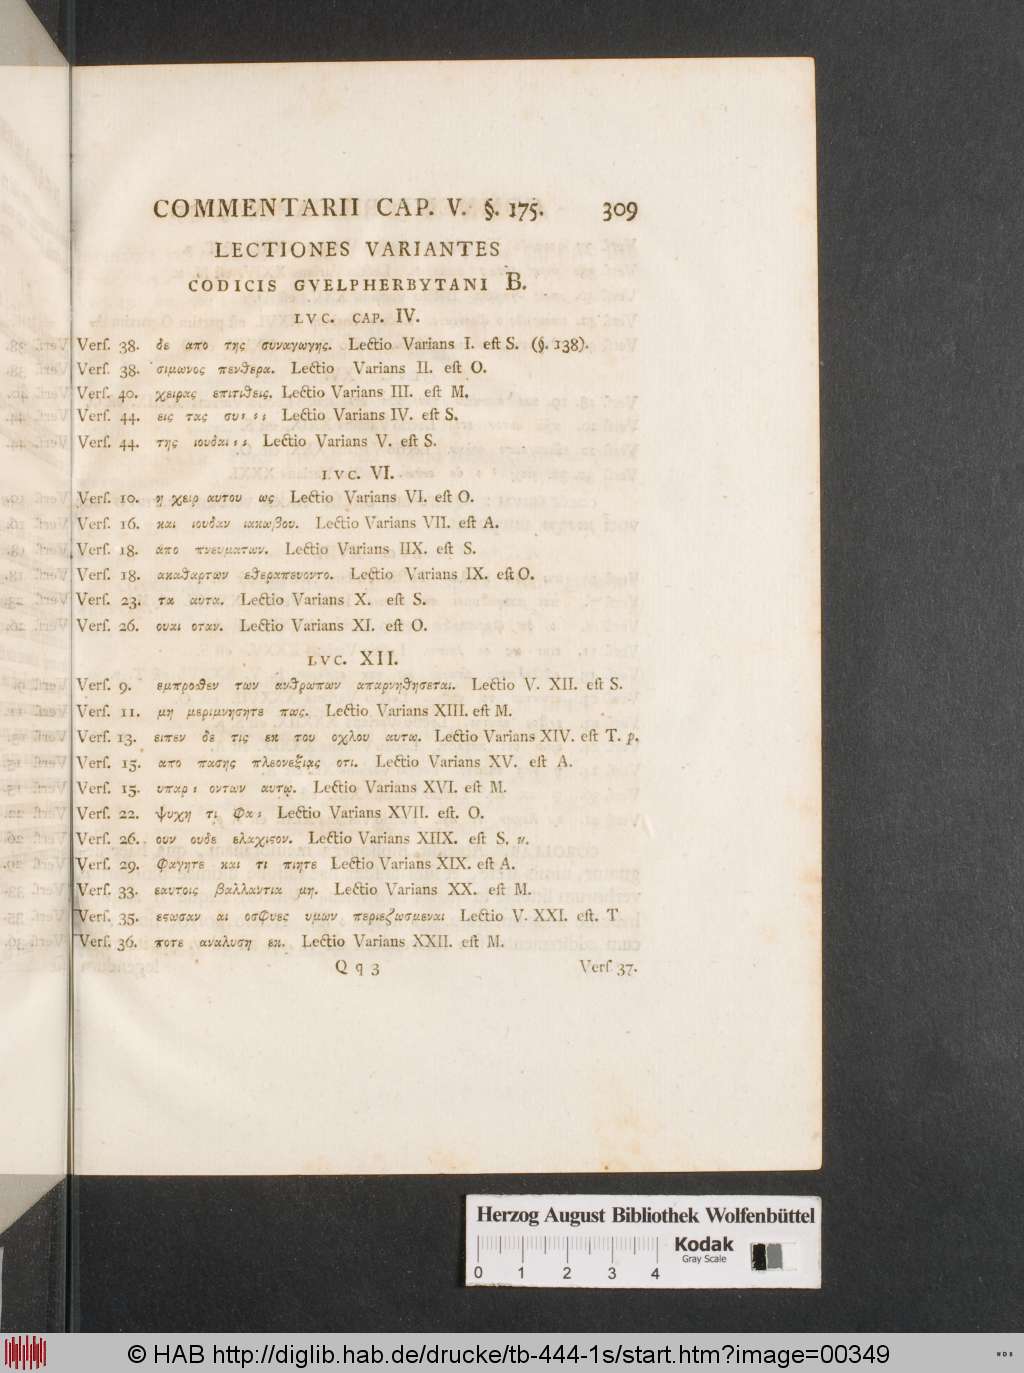 COMMENTARII CAP. V. §. 175. 309
LECTIONES VARIANTES
CODICIS GVELPHERBYTANI B.
LVC. CAP. IV.
Verſ. 38. δε απο της συναγωγης. Lectio Varians I. eſt S. (§. 138).
Verſ. 38. σιμωνος πενθερα. Lectio Varians II. eſt O.
Verſ. 40. χειρας επιτιθεις. Lectio Varians III. eſt M.
Verſ. 44. εις τας συ: : : Lectio Varians IV. eſt S.
Verſ. 44. της ιουδαι: : Lectio Varians V. eſt S.
LVC. VI.
Verſ. 10. η χειρ αυτου ως Lectio Varians VI. eſt O.
Verſ. 16. και ιουδαν ιακωβου. Lectio Varians VII. eſt A.
Verſ. 18. απο πνευματων. Lectio Varians IIX. eſt S.
Verſ. 18. ακαθαρτων εθεραπευοντο. Lectio Varians IX. eſt O.
Verſ. 23. τα αυτα. Lectio Varians X. eſt S.
Verſ. 26. ουαι οταν. Lectio Varians XI. eſt O.
LVC. XII.
Verſ. 9. εμπροθεν των ανθρωπων απαρνηθησεται. Lectio V. XII. eſt S.
Verſ. 11. μη μεριμνησητε πως. Lectio Varians XIII. eſt M.
Verſ. 13. ειπεν δε τις εκ του οχλου αυτω. Lectio Varians XIV. eſt T. p.
Verſ. 15. απο πασης πλεονεξιας οτι. Lectio Varians XV. eſt A.
Verſ. 15. υπαρ: οντων αυτῳ. Lectio Varians XVI. eſt M.
Verſ. 22. ψυχη τι φα: Lectio Varians XVII. eſt. O.
Verſ. 26. ουν ουδε ελαχιϛον. Lectio Varians XIIX. eſt S. κ.
Verſ. 29. φαγητε και τι πιητε Lectio Varians XIX. eſt A.
Verſ. 33. εαυτοις βαλλαντια μη. Lectio Varians XX. eſt M.
Verſ. 35. εϛωσαν αι οσφυες υμων περιεζωσμεναι Lectio V. XXI. eſt. T
Verſ. 36. ποτε αναλυση εκ. Lectio Varians XXII. eſt M.
Q q 3 Verſ. 37.
Herzog August Bibliothek Wolfenbüttel
Kodak
Gray Scale
0 1 2 3 4
© HAB http://diglib.hab.de/drucke/tb-444-1s/start.htm?image=00349